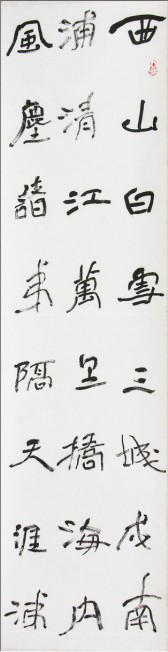 西山白雪三城戍南
浦清江萬里橋海内
風塵諸弟隔天涯涕